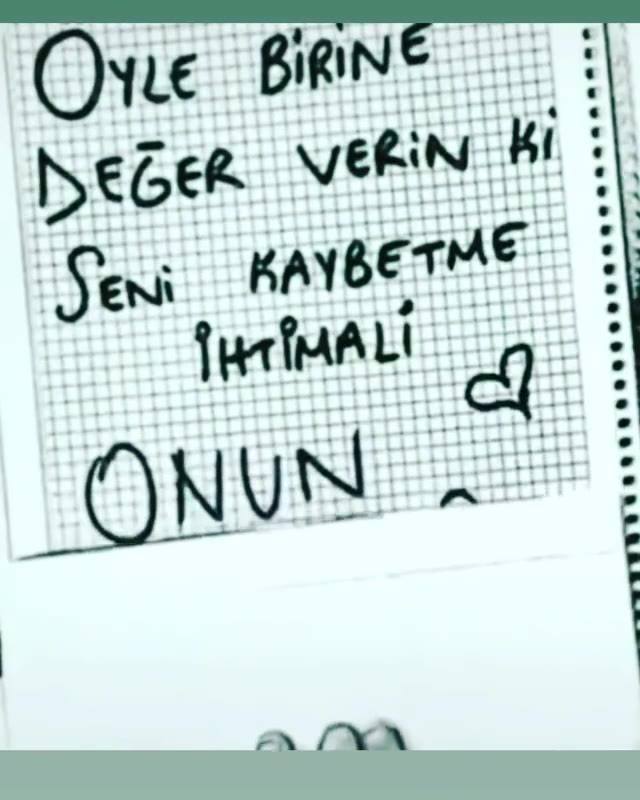 ÖYLE BİRİNE
DEĞER VERİN Kİ
SENİ KAYBETME
İHTİMALİ
ONUN